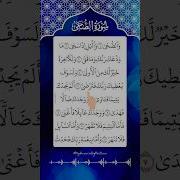 سُورَةُ الضُّحَىٰ
وَالضُّحَىٰ ① وَاللَّيْلِ إِذَا سَجَىٰ ②
مَا وَدَّعَكَ رَبُّكَ وَمَا قَلَىٰ ③ وَلَلْآخِرَةُ
خَيْرٌ لَّكَ مِنَ الْأُولَىٰ ④ وَلَسَوْفَ
يُعْطِيكَ رَبُّكَ فَتَرْضَىٰ ⑤ أَلَمْ يَجِدْكَ
يَتِيمًا فَآوَىٰ ⑥ وَوَجَدَكَ ضَالًّا
فَهَدَىٰ ⑦ وَوَجَدَكَ عَائِلًا فَأَغْنَىٰ ⑧
فَأَمَّا الْيَتِيمَ فَلَا تَقْهَرْ ⑨ وَأَمَّا السَّائِلَ
فَلَا تَنْهَرْ ⑩